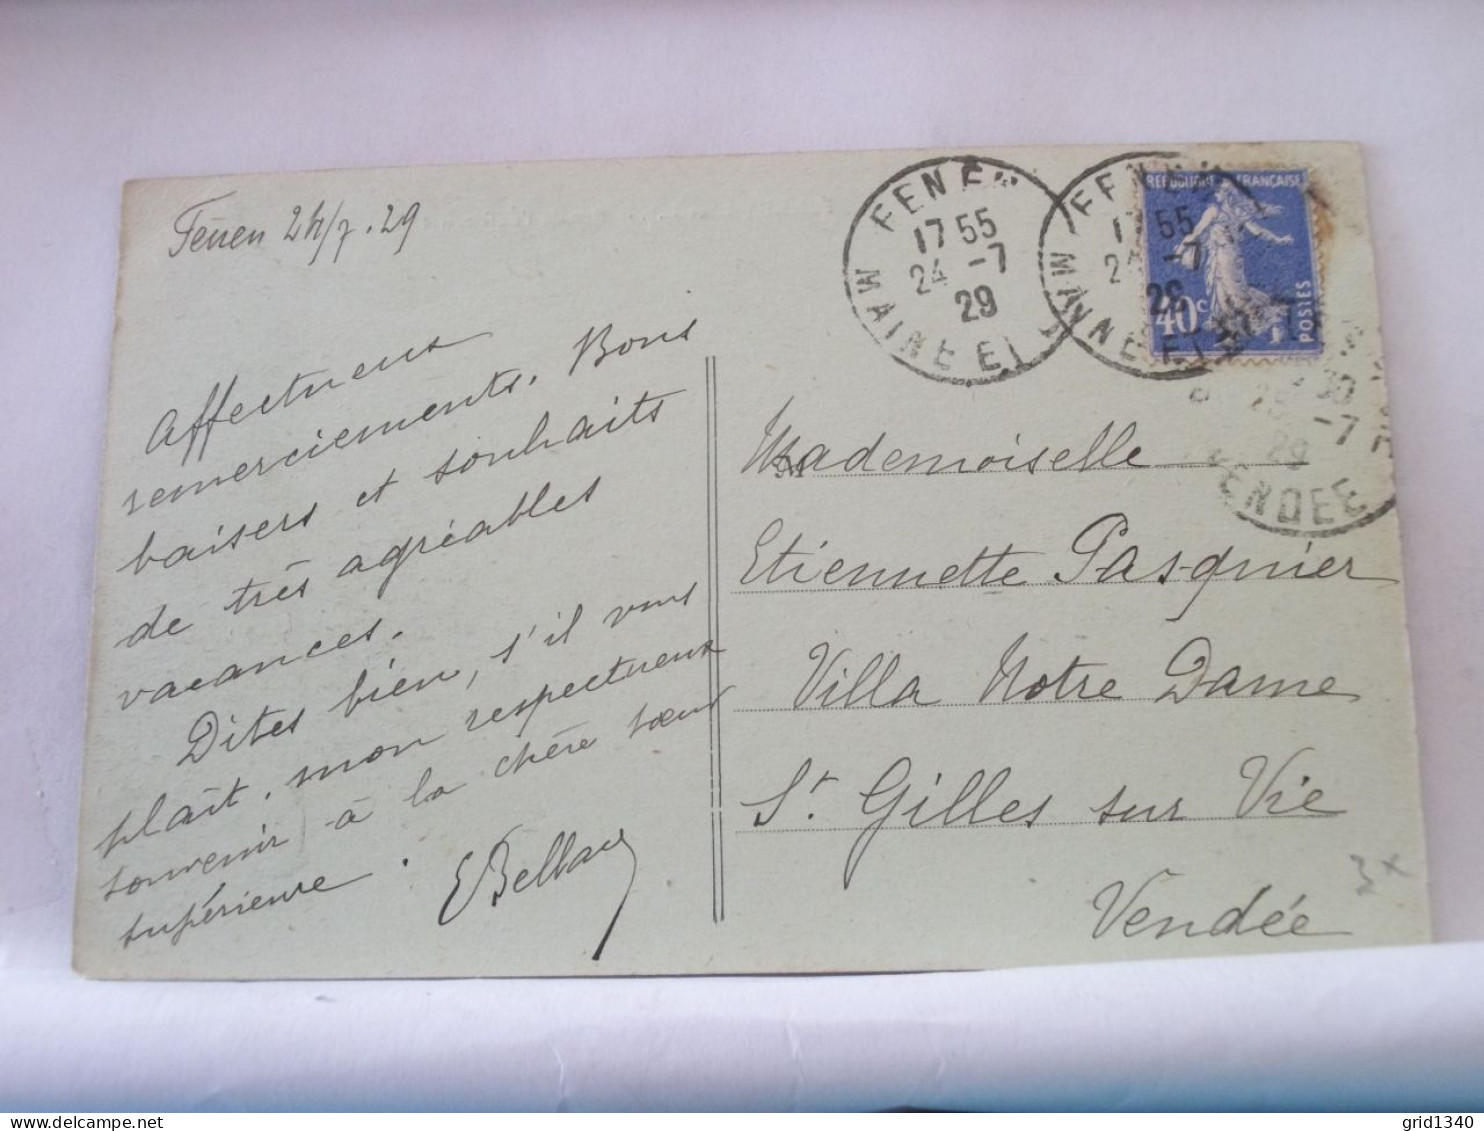 Feneu 24/7.29
Affectueux
remerciements. Bons
baisers et souhaits
de très agréables
vacances.
Dites bien, s'il vous
plaît, mon respectueux
souvenir à la chère sœur
supérieure.
FENEU
17 55
24 -7
29
MAINE ET
FENEU
17 55
24 -7
29
REPUBLIQUE FRANÇAISE
40c
POSTES
25 -7
29
VENDEE
Mademoiselle
Etiennette Pasquier
Villa Notre Dame
St Gilles sur Vie
Vendée
3x
delcampe.net
grid1340